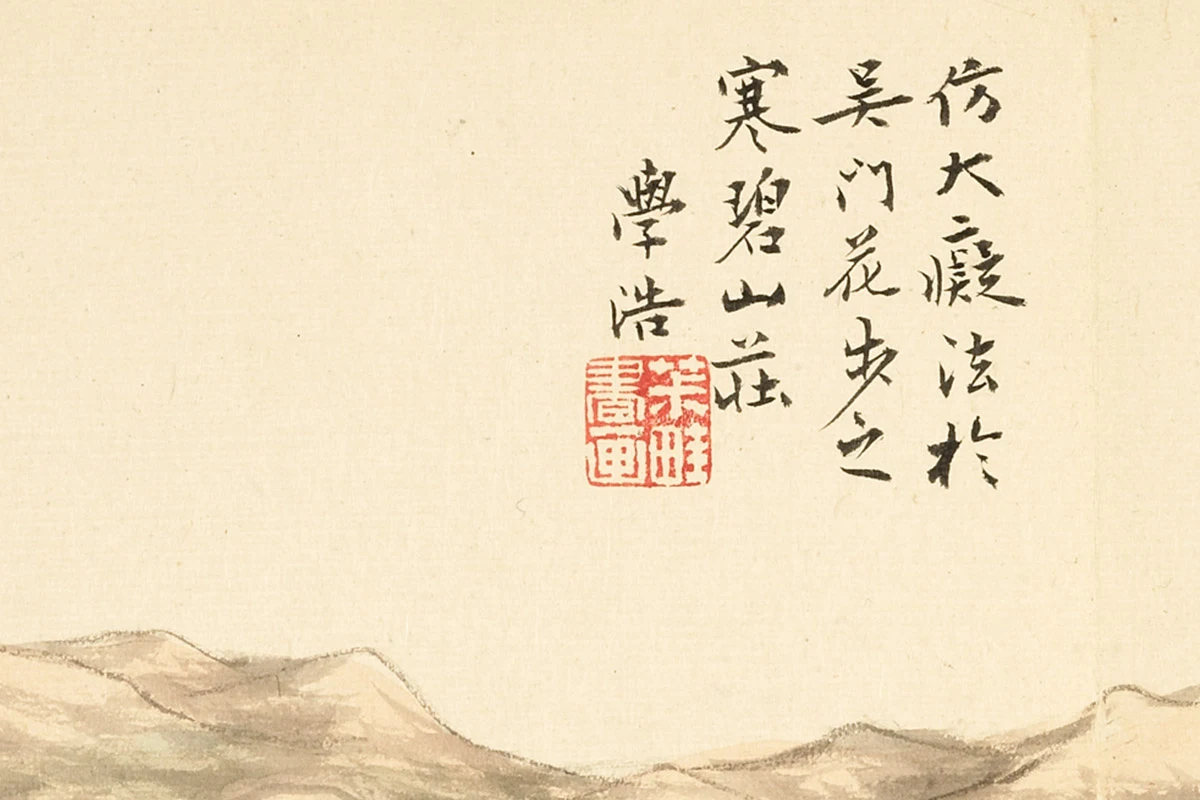 仿大癡法於
吳門花步之
寒碧山莊
學浩
芙畦
畫画